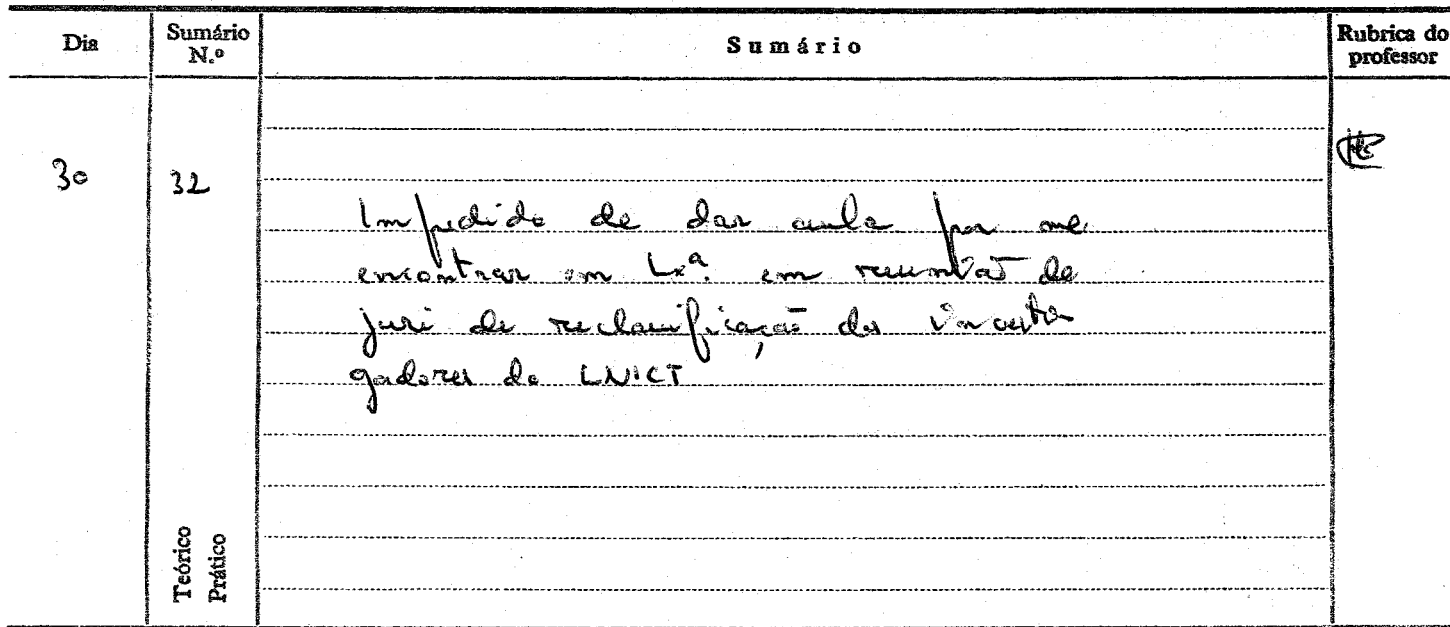 Dia Sumário N.º Sumário Rubrica do professor
30 32
Impedido de dar aula por me
encontrar em Lxª. em reunião de
juri de reclassificação dos investi
gadores do LNICT
Teórico
Prático